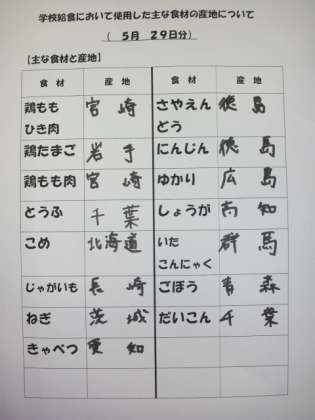 学校給食において使用した主な食材の産地について
( 5月 29日分)
【主な食材と産地】
食材 産地 食材 産地
鶏もも
ひき肉 宮崎 さやえん
どう 徳島
鶏たまご 岩手 にんじん 徳島
鶏もも肉 宮崎 ゆかり 広島
とうふ 千葉 しょうが 高知
こめ 北海道 いた
こんにゃく 群馬
じゃがいも 長崎 ごぼう 青森
ねぎ 茨城 だいこん 千葉
きゃべつ 愛知